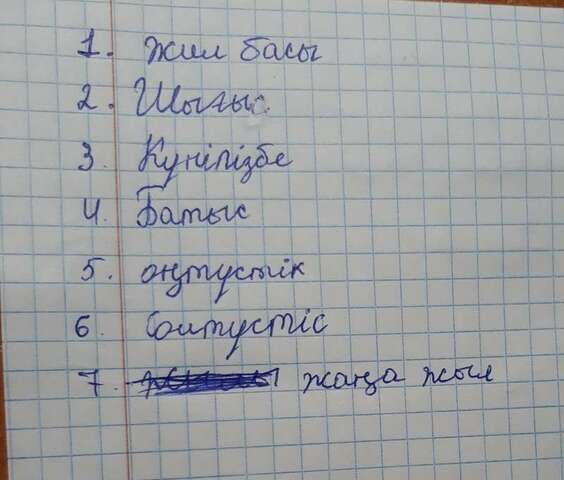 1. жил басы
2. Шығыс
3. Күнілізбе
4. Батыс
5. оңтустік
6. Солтустіс
7. жаңа жыл